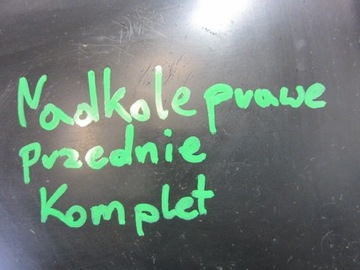 Nadkole prawe
przednie
Komplet